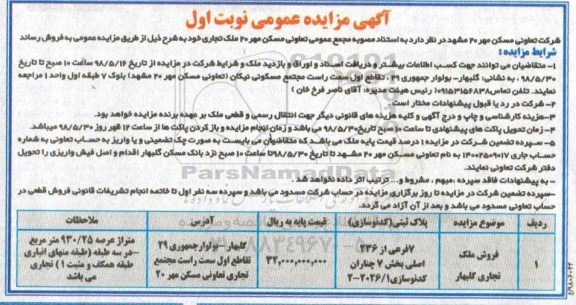 آگهی مزایده عمومی نوبت اول
شرکت تعاونی مسکن مهر ۲۰ مشهد در نظر دارد به استناد مصوبه مجمع عمومی تعاونی مسکن مهر ۲۰ ملک تجاری خود به شرح ذیل از طریق مزایده عمومی به فروش رساند
شرایط مزایده :
۱- متقاضیان می توانند جهت کسب اطلاعات بیشتر و دریافت اسناد و اوراق و بازدید ملک و شرایط شرکت در مزایده از تاریخ ۹۸/۵/۱۶ ساعت ۱۰ صبح تا تاریخ
۹۸/۵/۳۰ ، به نشانی: گلبهار- بولوار جمهوری ۲۹ ، تقاطع اول سمت راست مجتمع مسکونی نیکان (تعاونی مسکن مهر ۲۰ مشهد) بلوک ۷ طبقه اول واحد ( مراجعه
نمایند. تلفن تماس ۰۹۱۵۳۱۵۶۸۳۸ رئیس هیئت مدیره: آقای ناصر فرخ خان )
۲- شرکت در رد یا قبول پیشنهادات مختار است.
۳-هزینه کارشناسی و چاپ و درج آگهی و کلیه هزینه های قانونی دیگر جهت انتقال رسمی و قطعی ملک بر عهده برنده مزایده خواهد بود.
۴- زمان تحویل پاکت های پیشنهادی تا ساعت ۱۰ صبح تاریخ ۹۸/۵/۳۰ می باشد و زمان انجام مزایده و باز کردن پاکت ها از ساعت ۱۲ ظهر روز ۹۸/۵/۳۰ میباشد.
۵- سپرده تضمین شرکت در مزایده ۱ درصد قیمت پایه ملک می باشد که متقاضیان می بایست به صورت چک تضمینی و یا واریز به حساب تعاونی به شماره
حساب جاری ۱۴۰۰۲۵۰۹۰۱۷ به نام تعاونی مسکن مهر ۲۰ مشهد تا تاریخ ۹۸/۵/۳۰ تا ساعت ۱۰ صبح نزد بانک مسکن گلبهار اقدام و اصل فیش واریزی را تحویل
دفتر شرکت تعاونی نمایند.
- به پیشنهادات فاقد سپرده ،مبهم ، مشروط و... ترتیب اثر داده نخواهد شد.
-سپرده تضمین شرکت در مزایده تا روز برگزاری مزایده در حساب شرکت مسدود می باشد و سپرده سه نفر اول تا خاتمه انجام تشریفات قانونی فروش قطعی در
حساب تعاونی مسدود می باشد و بعد از آن آزاد می گردد.
ردیف موضوع مزایده پلاک ثبتی(کدنوسازی) قیمت پایه به ریال آدرس ملاحظات
۱ فروش ملک تجاری گلبهار ۷فرعی از ۲۳۶ اصلی بخش ۷ چناران کدنوسازی ۱-۲۰۲۶/۱ ۳۲,۰۰۰,۰۰۰,۰۰۰ گلبهار - بولوار جمهوری ۲۹ تقاطع اول سمت راست مجتمع تجاری تعاونی مسکن مهر ۲۰ متراژ عرصه ۹۳۰/۲۵ متر مربع -در سه طبقه (طبقه منهای انباری طبقه همکف و مثبت ۱) تجاری می باشد
ParsNamadData